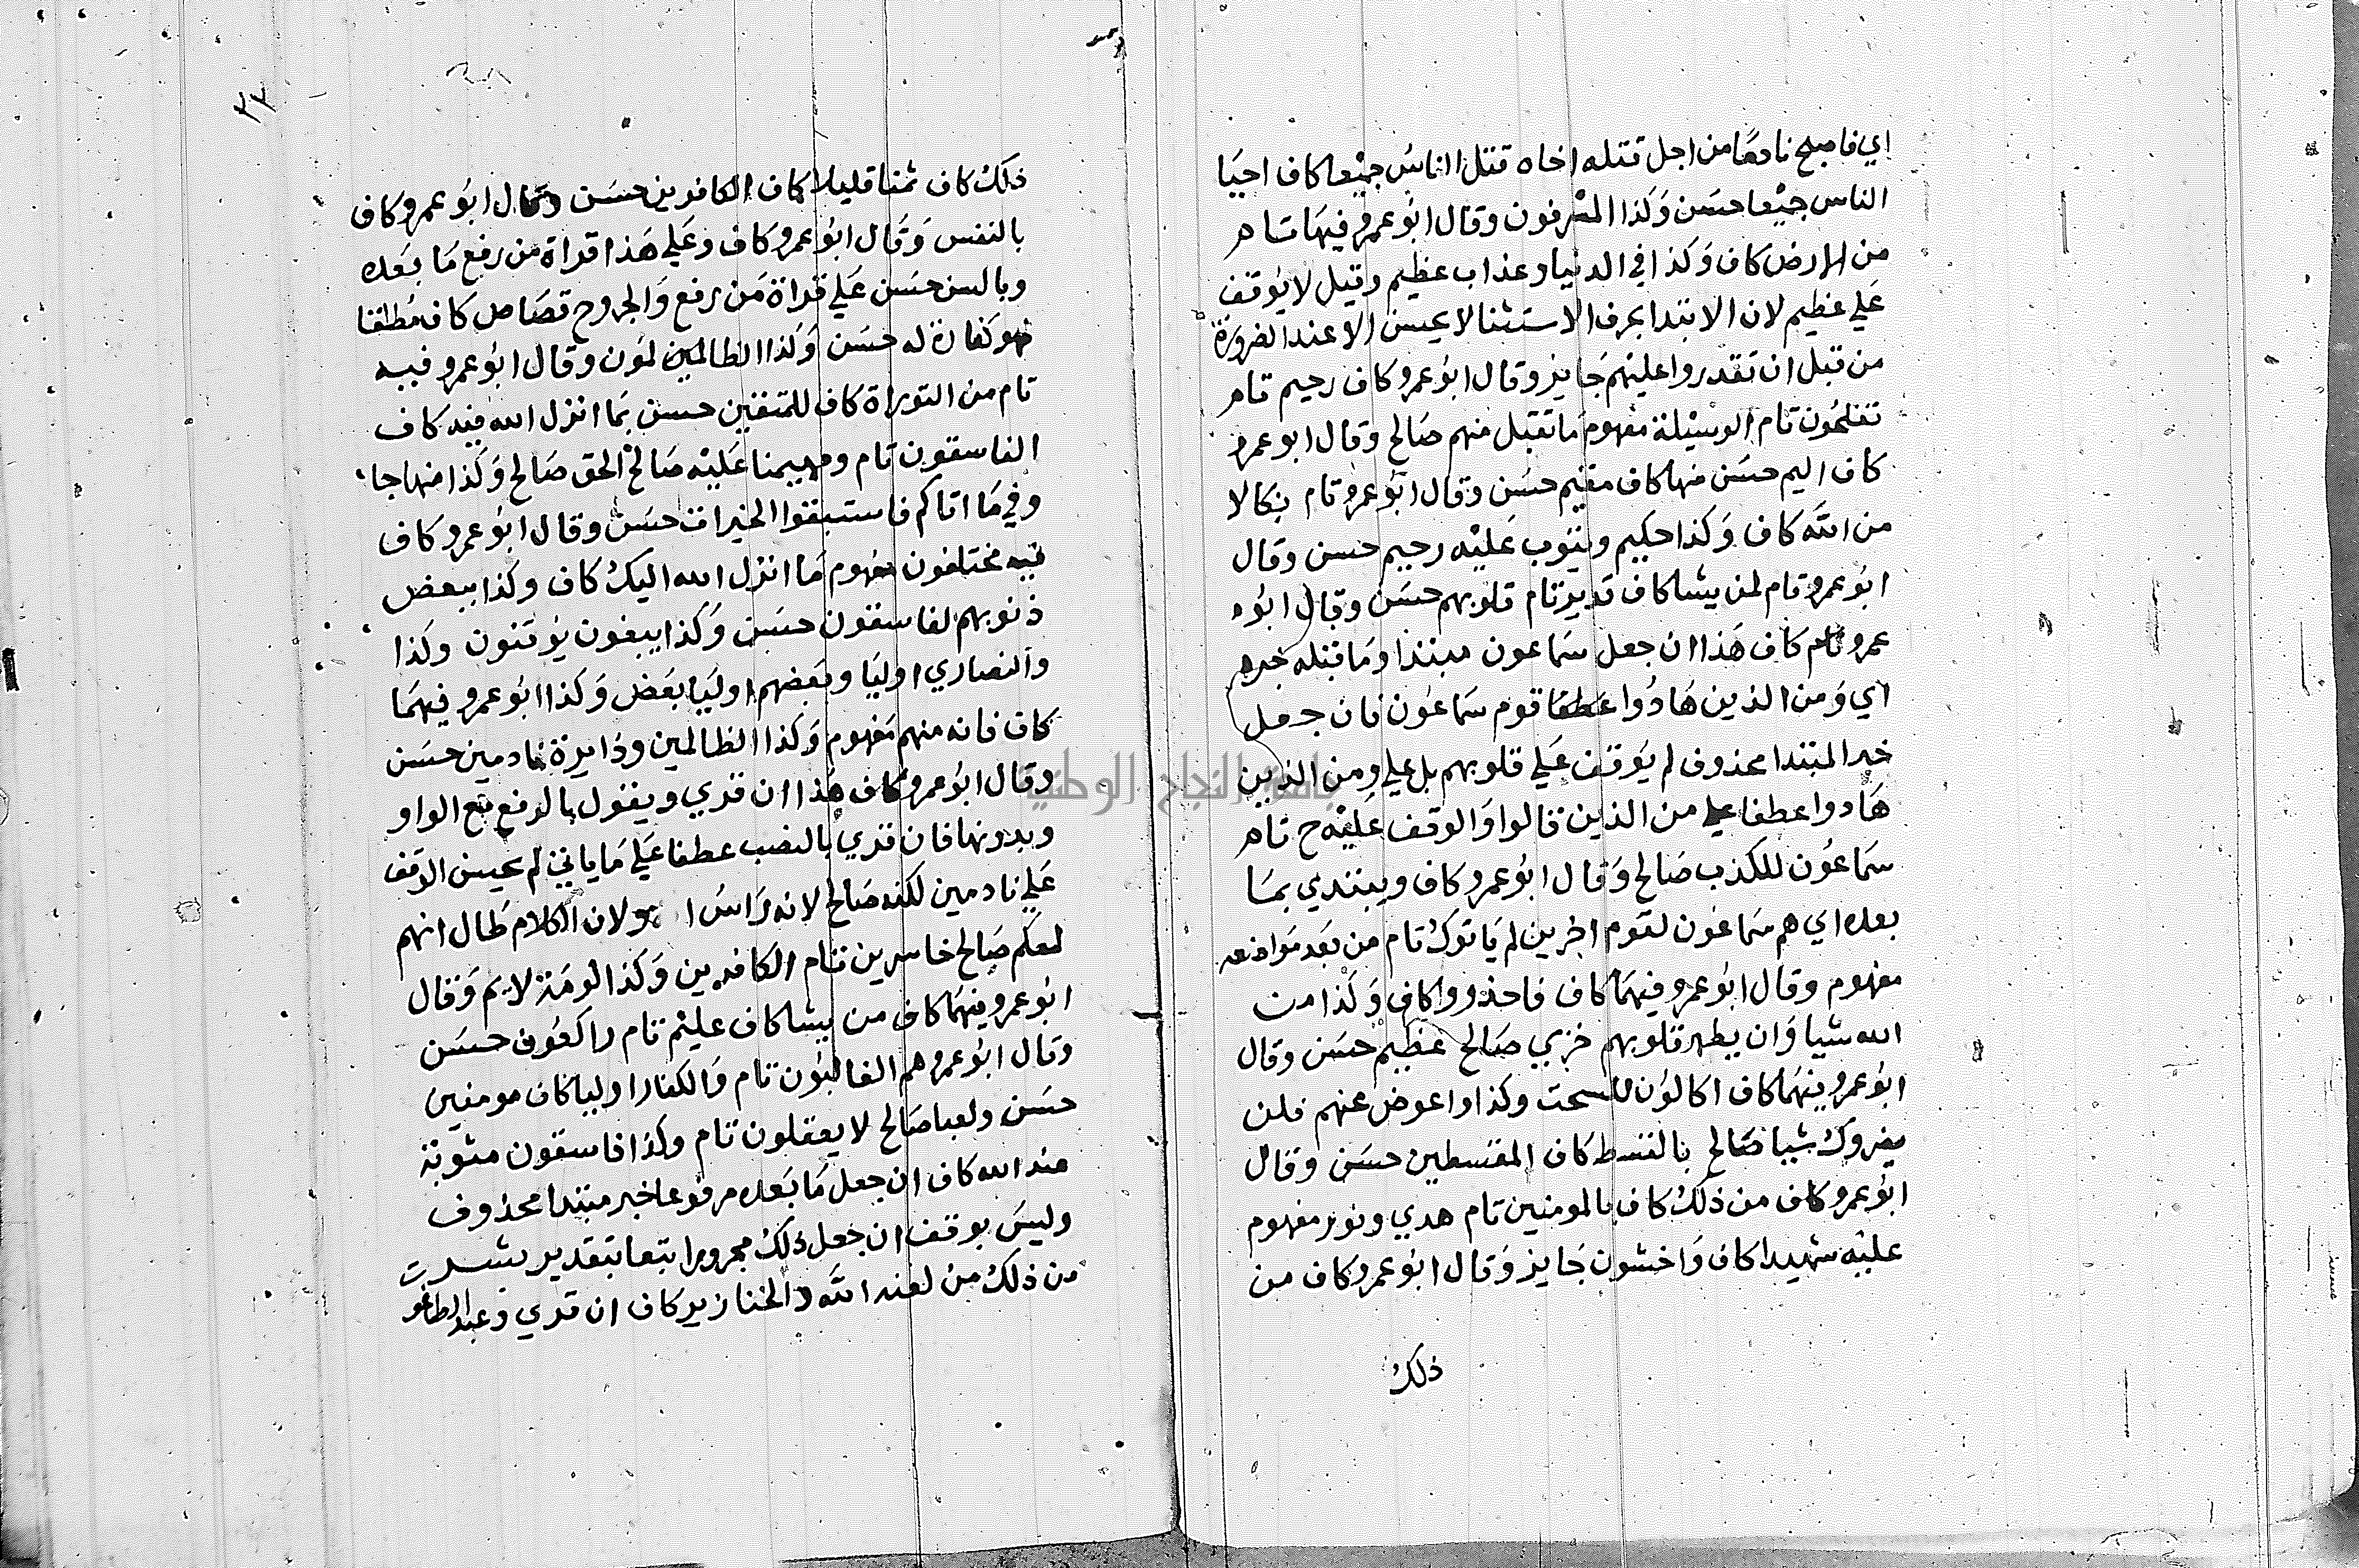 اي فاصبح نادما من اجل قتله اخاه قتل الناس جميعا كاف احيا
الناس جميعا حسن وكذا المسرفون وقال ابو عمرو فيهما تام
من الارض كاف وكذا في الدنيا وعذاب عظيم وقيل لا يوقف
علي عظيم لان الابتدا بحرف الاستثنا لا يحسن الا عند الضرورة
من قبل ان تقدروا عليهم جايز وقال ابو عمرو كاف رحيم تام
تفلحون تام الوسيلة مفهوم ما تقبل منهم صالح وقال ابو عمرو
كاف اليم حسن منها كاف مقيم حسن وقال ابو عمرو تام نكالا
من الله كاف وكذا حكيم ويتوب عليه رحيم حسن وقال
ابو عمرو تام لمن يشا كاف قدير تام قلوبهم حسن وقال ابو
عمرو كاف هذا ان جعل سماعون مبتدا وما قبله خبره
اي ومن الذين هادوا عطفا قوم سماعون فان جعل
خبر المبتدا محذوف لم يوقف علي قلوبهم بل علي ومن الذين
هادوا عطفا علي من الذين قالوا والوقف عليه ح تام
سماعون للكذب صالح وقال ابو عمرو كاف ويبتدي بما
بعده اي هم سماعون لقوم اخرين لم ياتوك تام من بعد مواضعه
مفهوم وقال ابو عمرو فيهما كاف فاحذروا كاف وكذا من
الله شيا وان يطهر قلوبهم خزي صالح عظيم حسن وقال
ابو عمرو فيهما كاف اكالون للسحت وكذا او اعرض عنهم فلن
يضروك شيا صالح بالقسط كاف المقسطين حسن وقال
ابو عمرو كاف من ذلك كاف بالمومنين تام هدي ونور مفهوم
عليه شهيدا كاف واخشون جايز وقال ابو عمرو كاف من
ذلك
٣٣
ذلك كاف ثمنا قليلا كاف الكافرين حسن وقال ابو عمرو كاف
بالنفس وقال ابو عمرو كاف وعلي هذا قراة من رفع ما بعده
وبالسن حسن علي قراة من رفع والجروح قصاص كاف مطلقا
فهو كفارة له حسن وكذا الظالمون وقال ابو عمرو فيه
تام من التوراة كاف للمتقين حسن بما انزل الله فيه كاف
الفاسقون تام ومهيمنا عليه صالح الحق صالح وكذا منهاجا
وفي ما اتاكم فاستبقوا الخيرات حسن وقال ابو عمرو كاف
فيه تختلفون مفهوم ما انزل الله اليك كاف وكذا ببعض
ذنوبهم لفاسقون حسن وكذا يبغون يوقنون وكذا
والنصاري اوليا وبعضهم اوليا بعض وكذا ابو عمرو فيهما
كاف فانه منهم مفهوم وكذا الظالمين ودايرة نادمين حسن
وقال ابو عمرو كاف هذا ان قري ويقول بالرفع مع الواو
وبدونها فان قري بالنصب عطفا علي ما ياتي لم يحسن الوقف
علي نادمين لكنه صالح لانه راس ا ولان الكلام طال انهم
لمعكم صالح خاسرين تام الكافرين وكذا لومة لايم وقال
ابو عمرو فيهما كاف من يشا كاف عليم تام راكعون حسن
وقال ابو عمرو هم الغالبون تام والكفار اوليا كاف مومنين
حسن ولعبا صالح لا يعقلون تام وكذا فاسقون مثوبة
عند الله كاف ان جعل ما بعده مرفوعا خبر مبتدا محذوف
وليس بوقف ان جعل ذلك مجرورا تبعا بتقدير بشر
من ذلك من لعنه الله والخنازير كاف ان قري وعبد الطاغو
جامعة النجاح الوطنية